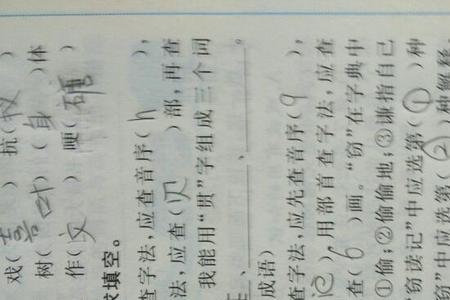 戏(喜) 抗(议)
树(叶) (身)体
作(文) 硬(糖)
填空。
查字法,应查音序(h),
法,应查(贝)部,再查
我能用“贯”字组成三个同
、 、 。
成语)
查字法,应先查音序(q),
用部首查字法,应查
查(6)画。“窃”在字典中
①偷;②偷偷地;③谦指自己
窃读记”中应选第(①)种
窃”中应选第(②)种解释。